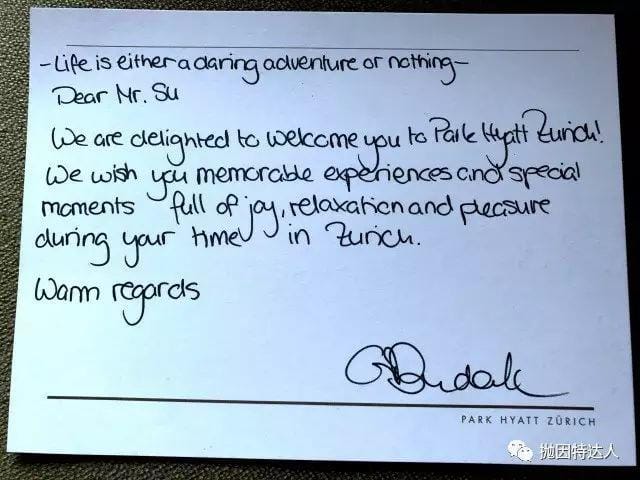 -Life is either a daring adventure or nothing-
Dear Mr. Su
We are delighted to welcome you to Park Hyatt Zurich!
We wish you memorable experiences and special
moments full of joy, relaxation and pleasure
during your time in Zurich.
Warm regards
PARK HYATT ZÜRICH
抛因特达人